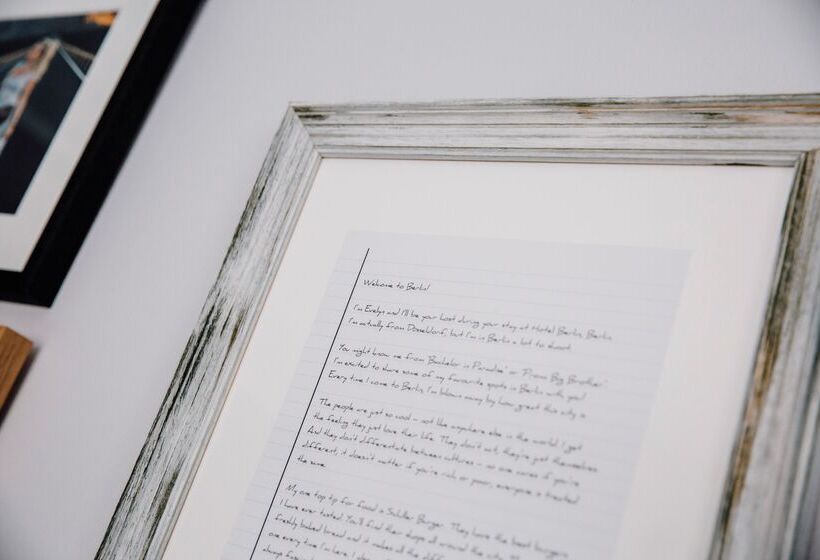 Welcome to Berlin!
I'm Evelyn and I'll be your host during your stay at Hotel Berlin, Berlin.
I'm actually from Düsseldorf, but I'm in Berlin a lot to shoot.
You might know me from 'Bachelor in Paradise' or 'Promi Big Brother'.
I'm excited to share some of my favourite spots in Berlin with you!
Every time I come to Berlin, I'm blown away by how great this city is.
The people are just so cool - not like anywhere else in the world. I get
the feeling they just love their life. They don't act, they're just themselves.
And they don't differentiate between cultures - no one cares if you're
different, it doesn't matter if you're rich or poor, everyone is treated
the same.
My one top tip for food is Schiller Burger. They have the best burgers
I have ever tasted. You'll find their shops all around the city. It's
freshly baked bread and it makes all the
one every time I'm here. I